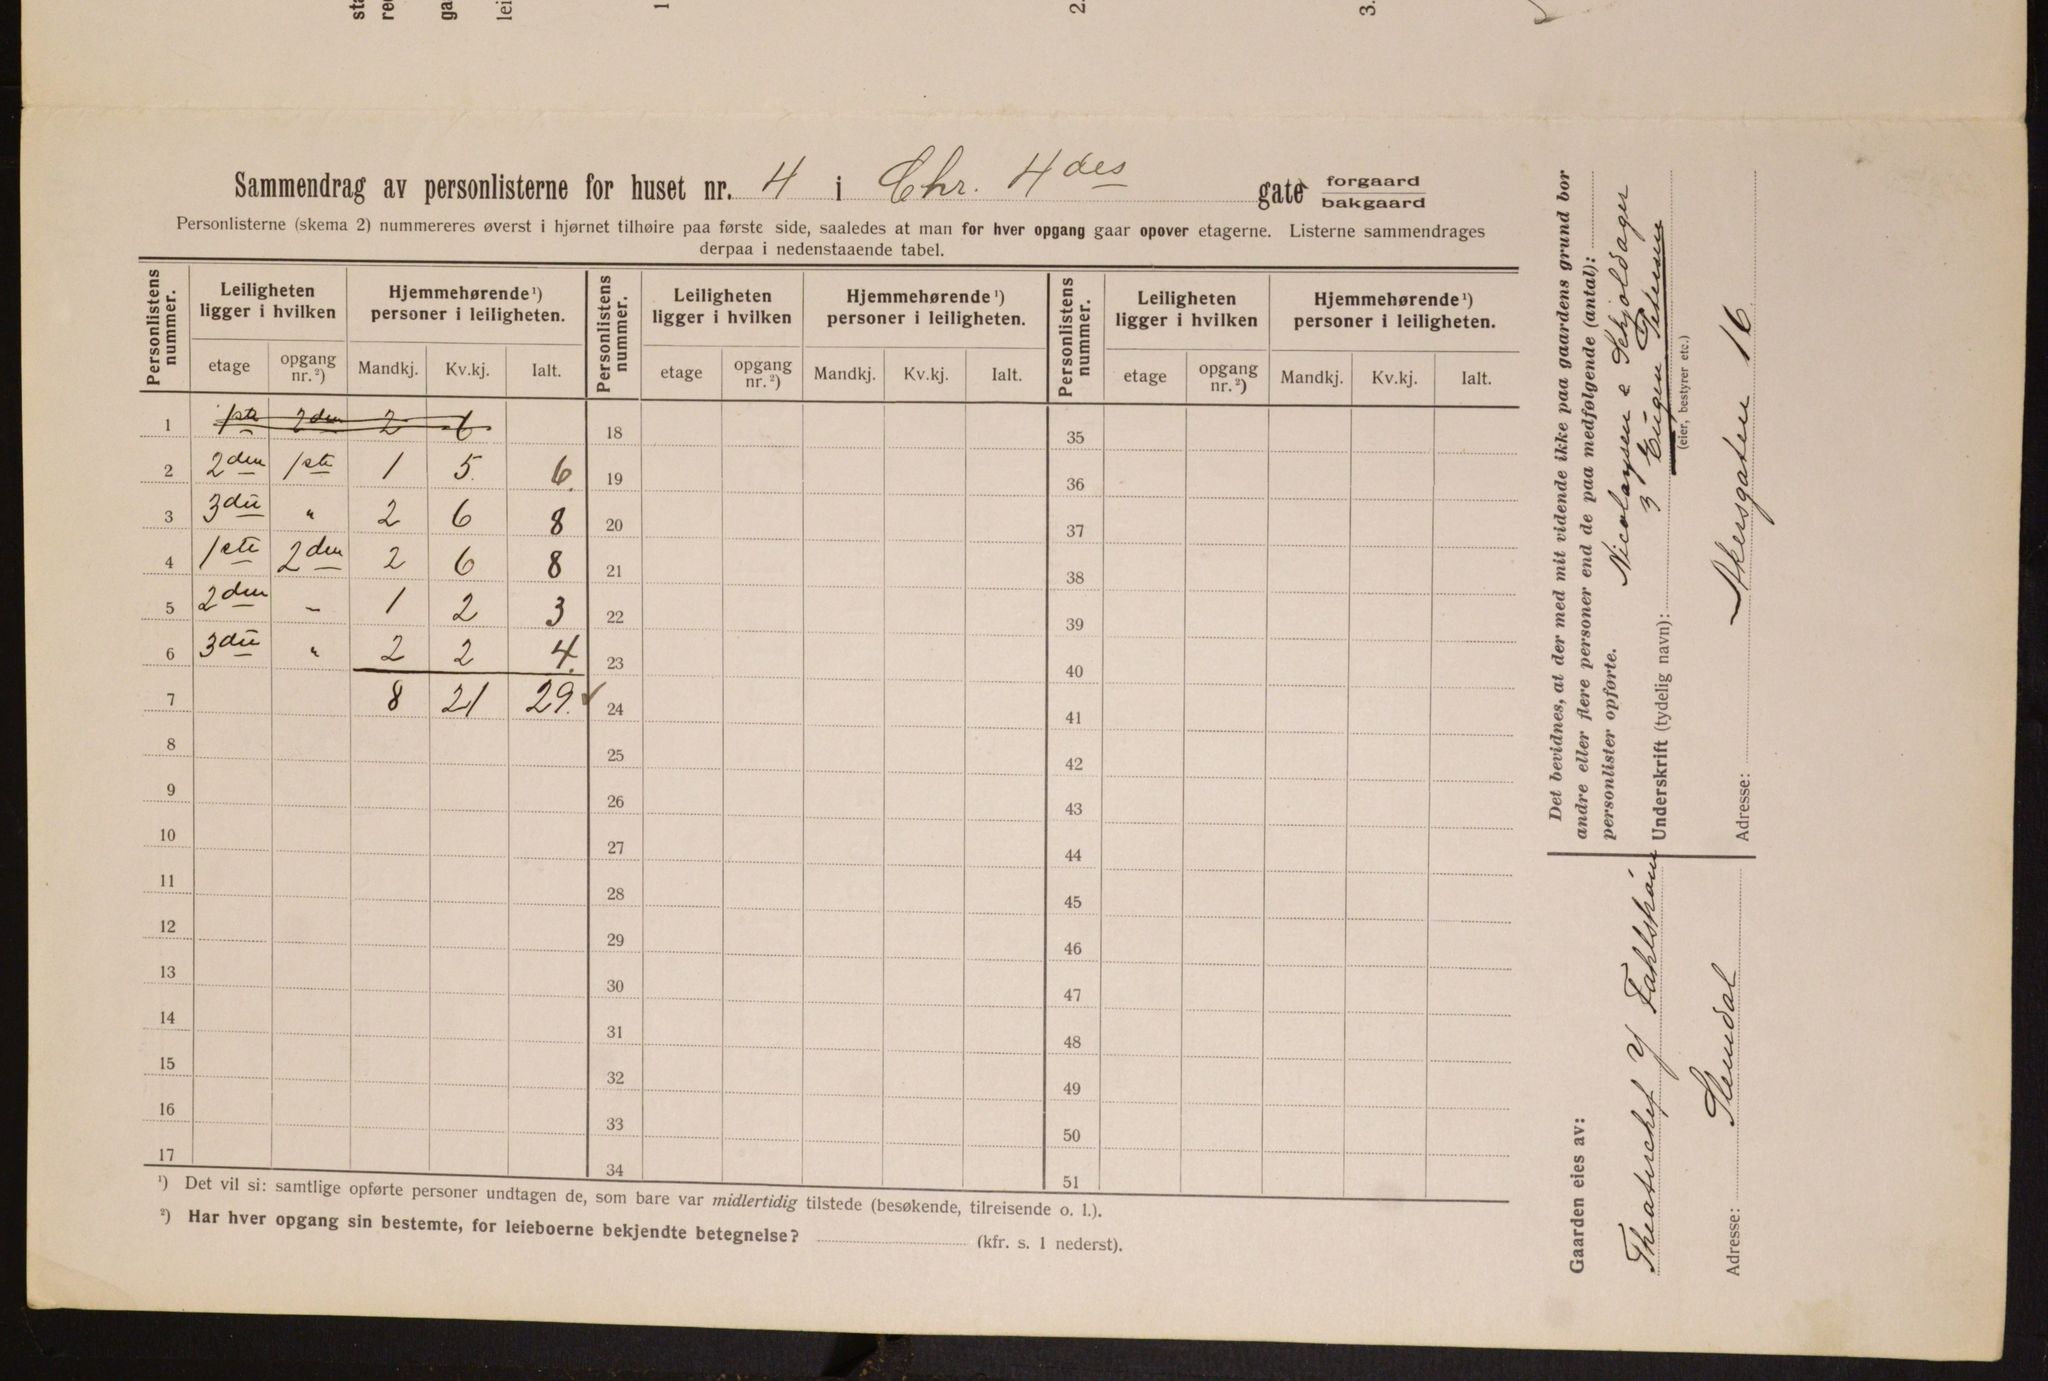 sta
red
ga
lei
1
2.
3.
Sammendrag av personlisterne for huset nr. 4 i Chr. 4des gate forgaard
bakgaard
Personlisterne (skema 2) nummereres øverst i hjørnet tilhøire paa første side, saaledes at man for hver opgang gaar opover etagerne. Listerne sammendrages
derpaa i nedenstaaende tabel.
Personlistens nummer. Leiligheten ligger i hvilken Hjemmehørende ¹) personer i leiligheten. Personlistens nummer. Leiligheten ligger i hvilken Hjemmehørende ¹) personer i leiligheten. Personlistens nummer. Leiligheten ligger i hvilken Hjemmehørende ¹) personer i leiligheten.
etage opgang nr. ²) Mandkj. Kv.kj. Ialt. etage opgang nr. ²) Mandkj. Kv.kj. Ialt. etage opgang nr. ²) Mandkj. Kv.kj. Ialt.
1 1ste 2den 2 6 18 35
2 2den 1ste 1 5. 6. 19 36
3 3die " 2 6 8 20 37
4 1ste 2den 2 6 8 21 38
5 2den – 1 2 3 22 39
6 3die " 2 2 4. 23 40
7 8 21 29. ✓ 24 41
8 25 42
9 26 43
10 27 44
11 28 45
12 29 46
13 30 47
14 31 48
15 32 49
16 33 50
17 34 51
¹) Det vil si: samtlige opførte personer undtagen de, som bare var midlertidig tilstede (besøkende, tilreisende o. l.).
²) Har hver opgang sin bestemte, for leieboerne bekjendte betegnelse? (kfr. s. 1 nederst).
Det bevidnes, at der med mit vidende ikke paa gaardens grund bor
andre eller flere personer end de paa medfølgende (antal):
personlister opførte. Nicolaysen & Schjoldager
Underskrift (tydelig navn): Eugen Petersen
(eier, bestyrer etc.)
Adresse: Akersgaten 16
Gaarden eies av:
Theaterchef Fahlstrøm
Adresse: Slemdal